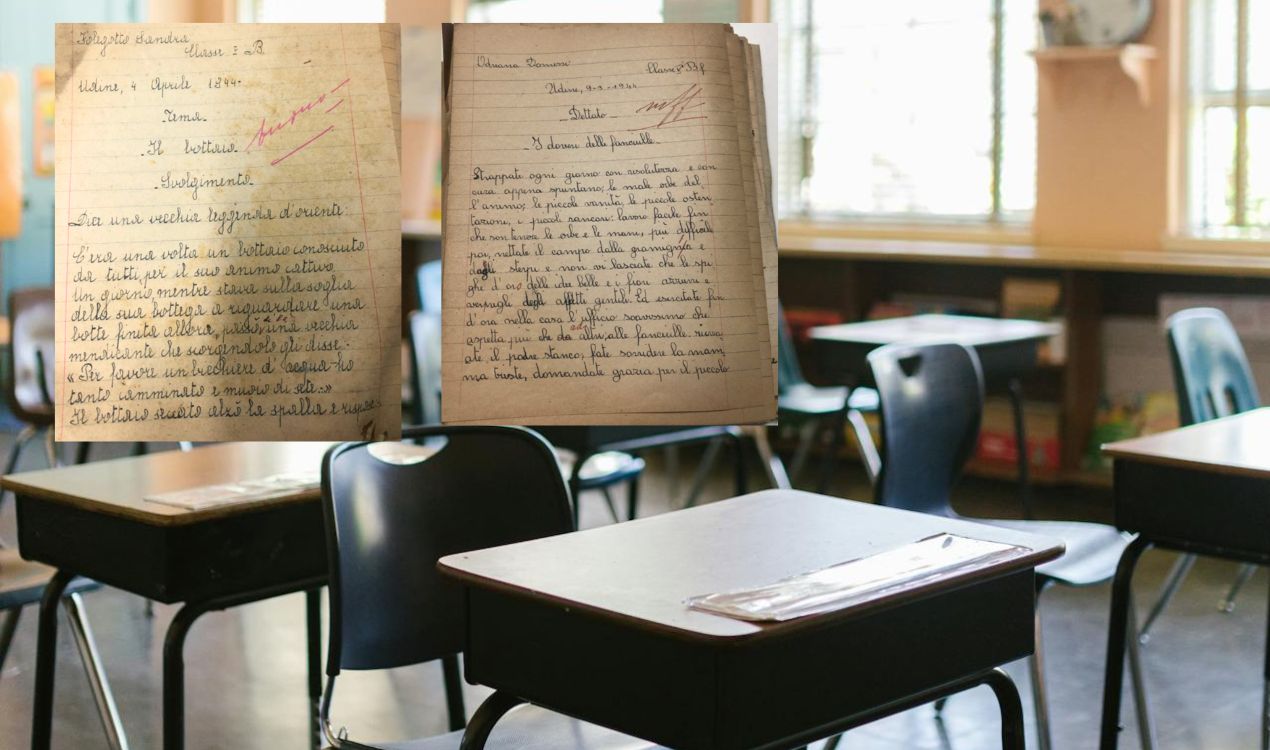 Folegotto Sandra
Classe I B
Udine, 4 Aprile 1944-
-Tema-
-Il bottaio-
buono-
-Svolgimento-
Dice una vecchia leggenda d'oriente:
C'era una volta un bottaio conosciuto
da tutti per il suo animo cattivo
Un giorno, mentre stava sulla soglia
della sua bottega a riguardare una
botte finita allora, passò una vecchia
mendicante che scorgendolo gli disse.
«Per favore un bicchiere d'acqua-ho
tanto camminato e muoio di sete.»
Il bottaio seccato alzò la spalla e rispo
Adriana
Classe
Udine, 9-3-1944
-Dettato-
-I doveri delle fanciulle-
Strappate ogni giorno con risolutezza e con
cura appena spuntano, le male erbe del
l'animo; le piccole vanità, le piccole osten
tazioni, i piccoli rancori: lavoro facile fin
che son tenere le erbe e le mani, più difficile
poi, nettate il campo dalla gramigna e
dagli sterpi e non vi lasciate che le spi
ghe d'oro delle idee belle e i fiori azzurri e
vermigli degli affetti gentili. Ed esercitate fin
d'ora nella casa l'ufficio soavissimo che
aspetta più che ad altri, alle fanciulle.
il padre stanco, fate sorridere la mam
ma triste, domandate grazia per il piccolo